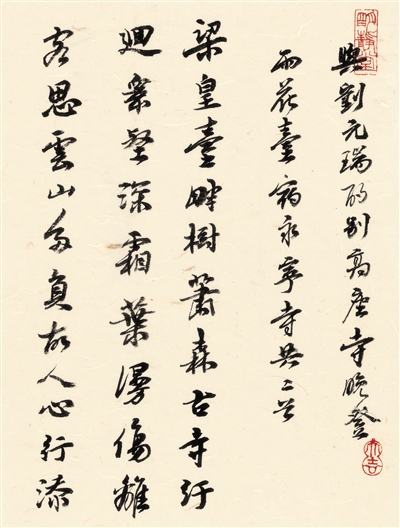 與劉元瑞酌别高座寺晚登
雨花臺宿永寧寺共二首
梁皇臺畔樹蕭森古寺紆
迴衆壑深霜葉漫傷離
客思雲山多負故人心行添
大吉